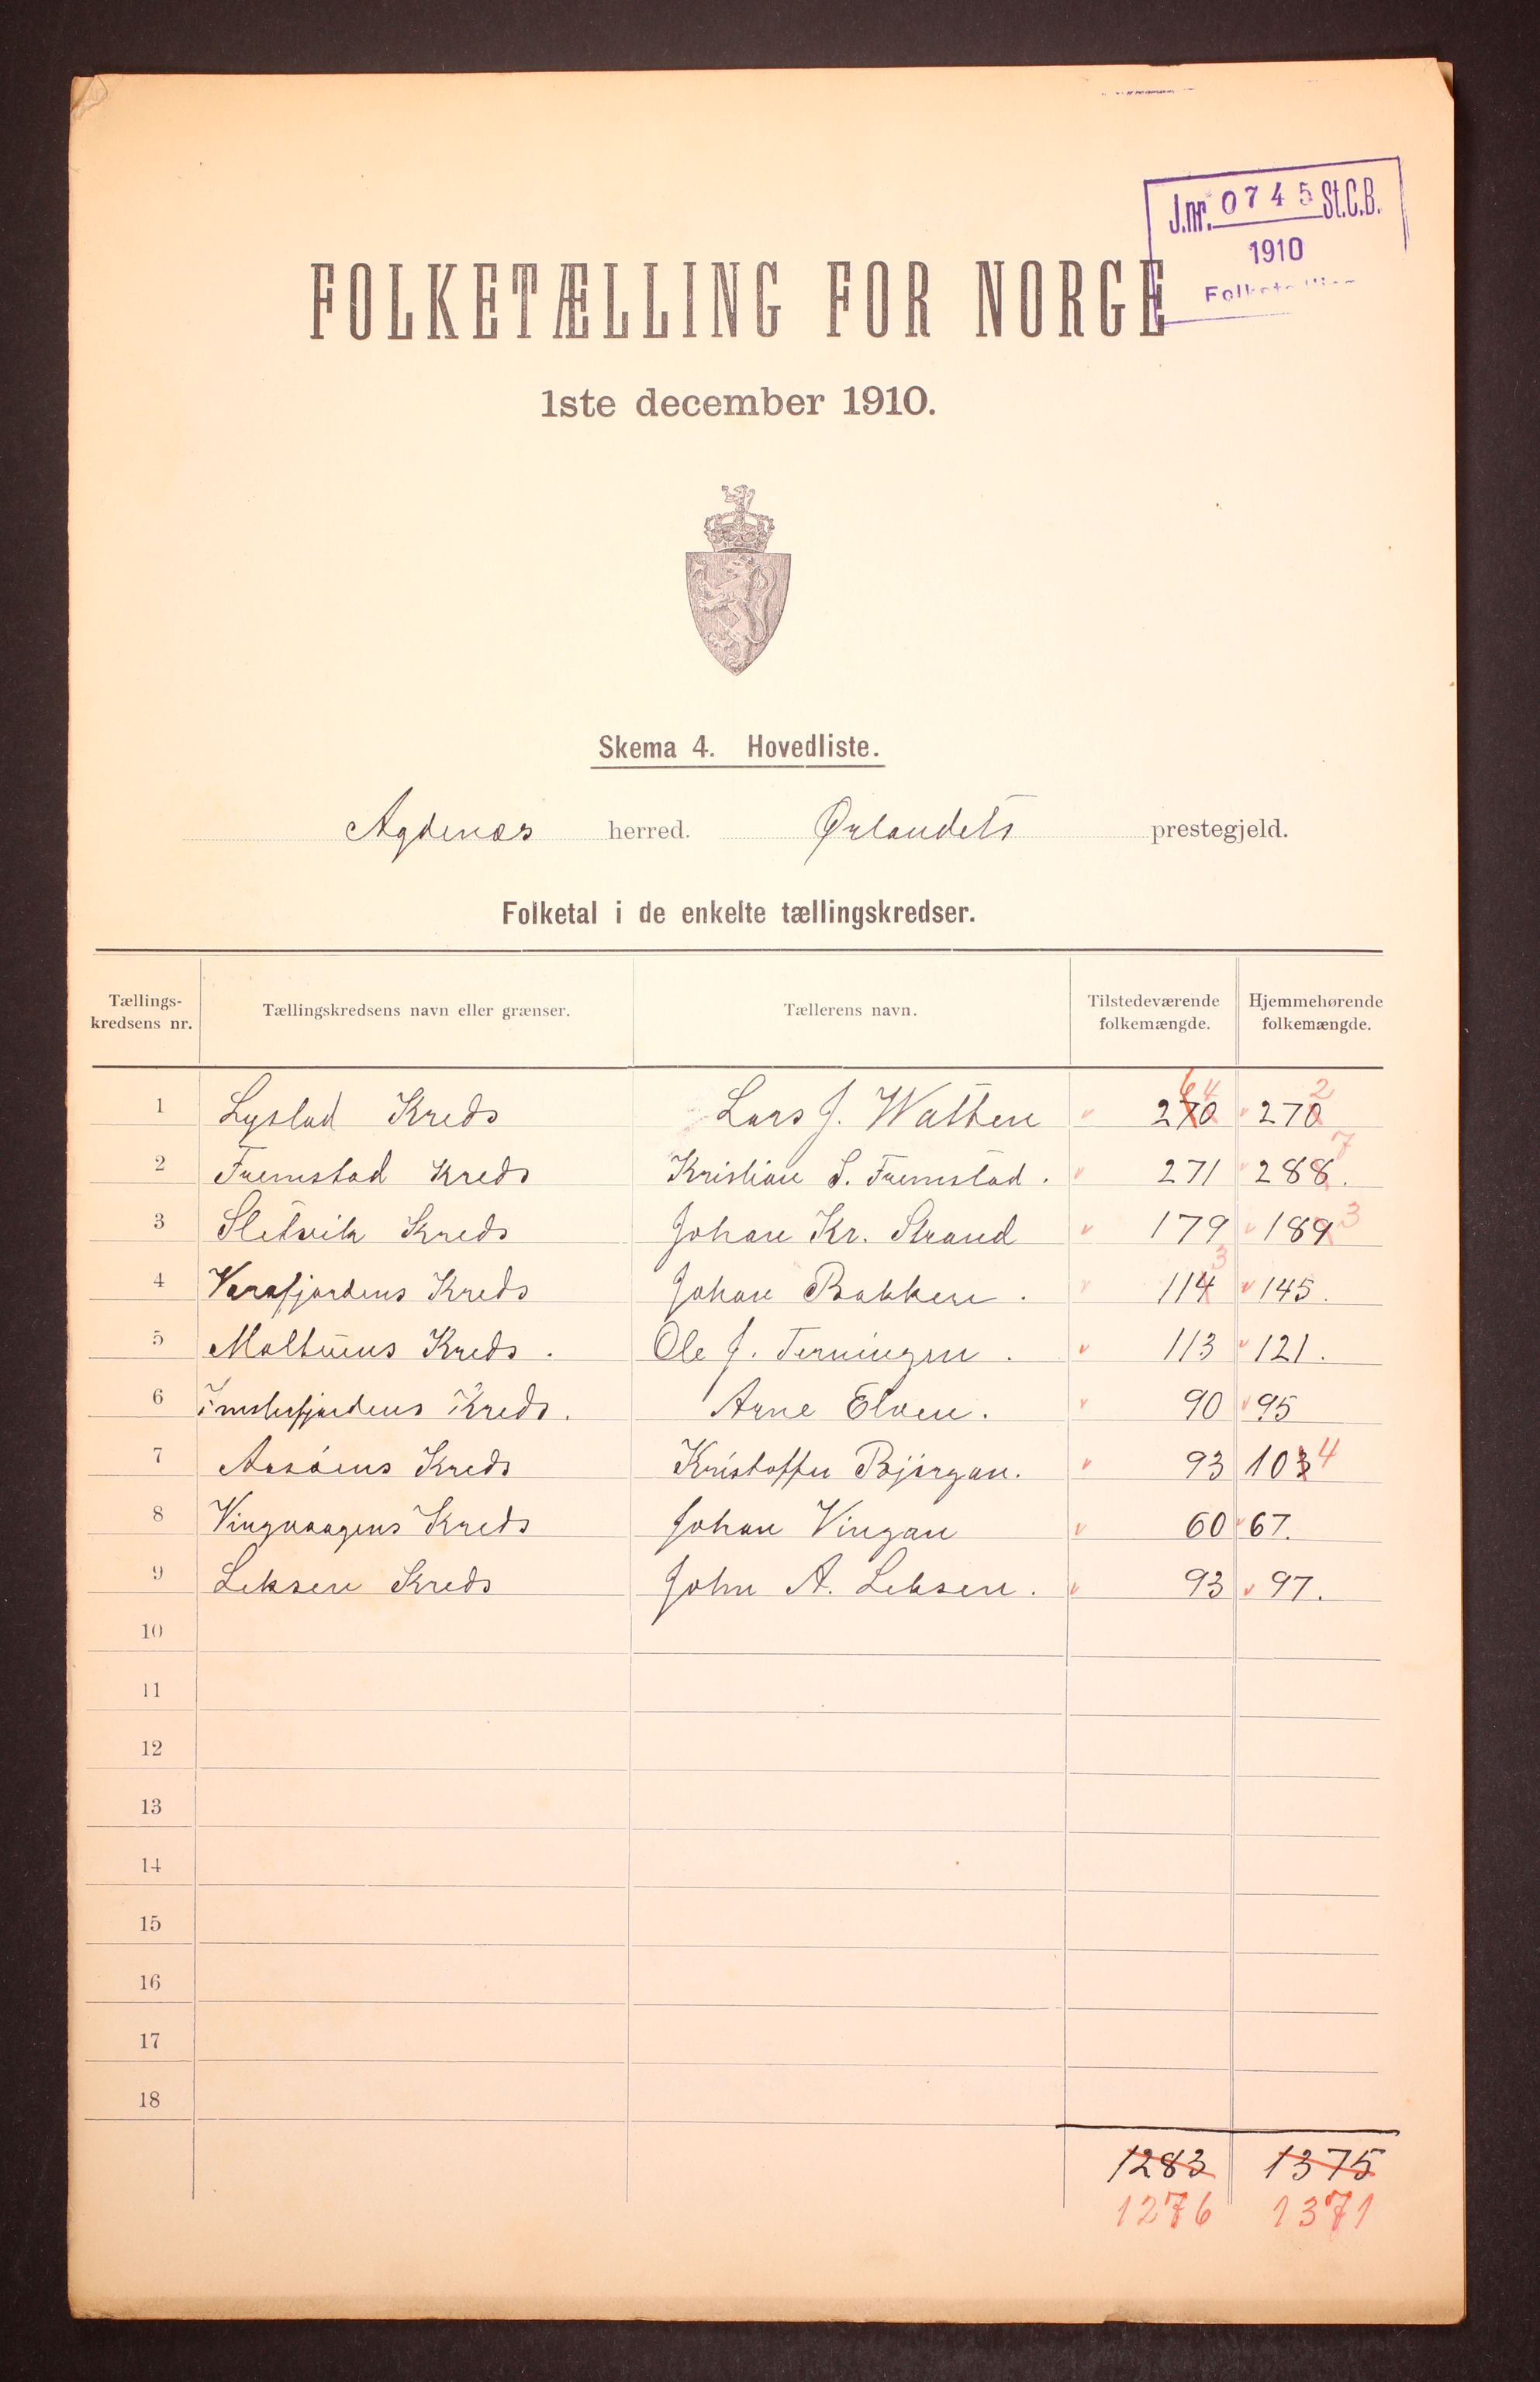 J.nr. 0745 St.C.B.
1910
FOLKETÆLLING FOR NORGE
1ste december 1910.
Skema 4. Hovedliste.
Agdenæs herred. Ørlandets prestegjeld.
Folketal i de enkelte tællingskredser.
Tællings-kredsens nr. Tællingskredsens navn eller grænser. Tællerens navn. Tilstedeværende folkemængde. Hjemmehørende folkemængde.
1 Lystad Kreds Lars J. Watten 270 64 270 2
2 Fremstad Kreds Kristian S. Fremstad. 271 288. 7
3 Sletvik Kreds Johan Kr. Strand 179 189 3
4 Verafjordens Kreds Johan Bakken. 114 3 145.
5 Moltuens Kreds. Ole J. Terningen. 113 121.
6 Imsterfjordens Kreds. Arne Elven. 90 95
7 Arsöens Kreds Kristoffer Björgan. 93 103 4
8 Vingvaagens Kreds Johan Vingan 60 67.
9 Leksen Kreds John A. Leksen. 93 97.
10
11
12
13
14
15
16
17
18
1283 1375
1276 1371